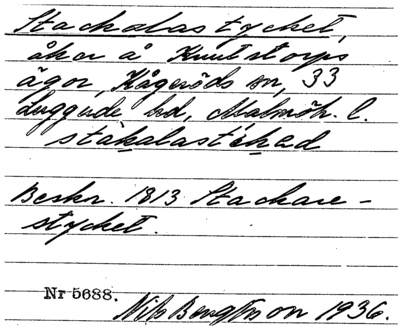 Stackalastycket,
åker å Knutstorps
ägor, Kågeröds sn, 33
Luggude hd, Malmöh. l.
stakalastéked
Beskr. 1813 Stackare-
stycket.
Nr 5688.
Nils Bengtsson 1936.